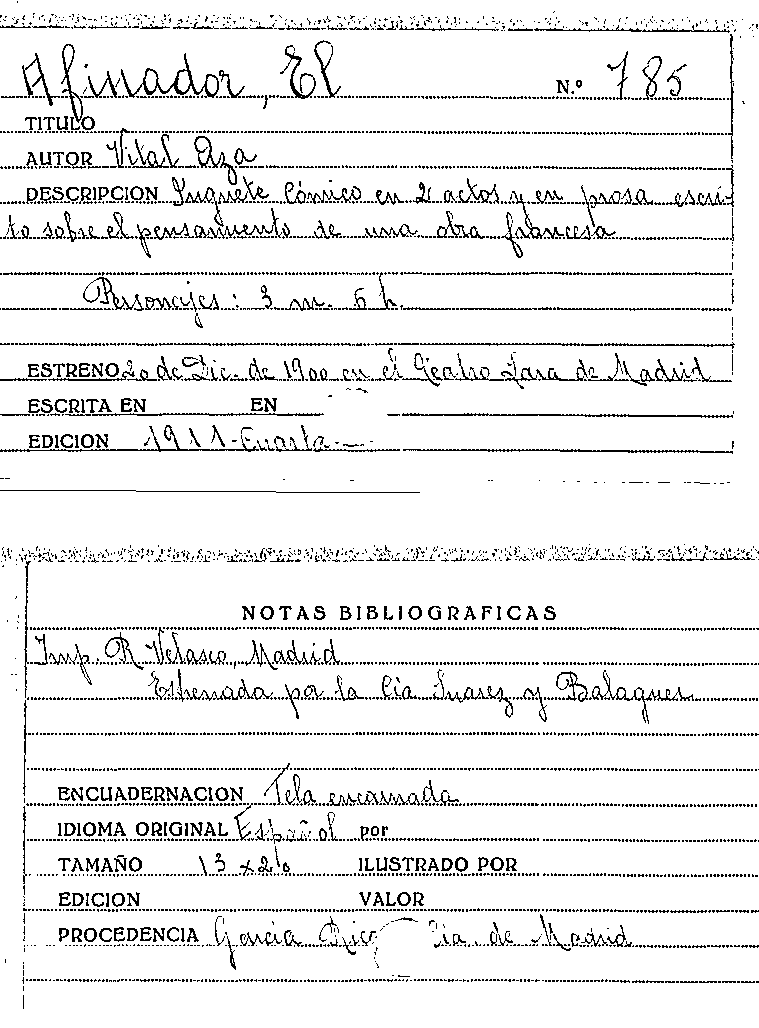 Afinador, El N.º 785
TITULO
AUTOR Vital Aza
DESCRIPCION Juguete Cómico en 2 actos y en prosa escri-
to sobre el pensamiento de una obra francesa
Personajes: 3 m. 6 h.
ESTRENO 20 de Dic. de 1900 en el Teatro Lara de Madrid
ESCRITA EN EN
EDICION 1911-Cuarta
NOTAS BIBLIOGRAFICAS
Imp. R. Velasco, Madrid
Estrenada por la Cía Suarez y Balaguer
ENCUADERNACION Tela encarnada
IDIOMA ORIGINAL Español por
TAMAÑO 13 x 20 ILUSTRADO POR
EDICION VALOR
PROCEDENCIA García Rico Cía. de Madrid